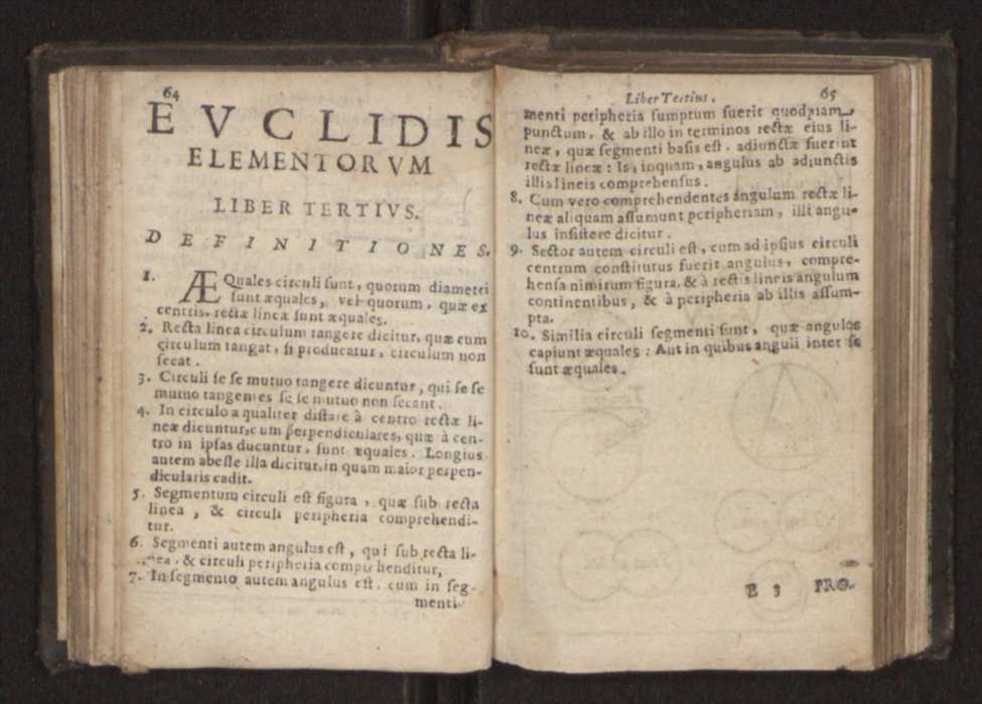 64
EVCLIDIS
ELEMENTORVM
LIBER TERTIVS.
DEFINITIONES.
1. ÆQuales circuli sunt, quorum diametri
sunt æquales, vel quorum, quæ ex
centris, rectæ lineæ sunt æquales.
2. Recta linea circulum tangere dicitur, quæ cum
circulum tangat, si producatur, circulum non
secat.
3. Circuli se se mutuo tangere dicuntur, qui se se
mutuo tangentes se se mutuo non secant.
4. In circulo æqualiter distare à centro rectæ li-
neæ dicuntur, cum perpendiculares, quæ à cen-
tro in ipsas ducuntur, sunt æquales. Longius
autem abesse illa dicitur, in quam maior perpen-
dicularis cadit.
5. Segmentum circuli est figura, quæ sub recta
linea, & circuli peripheria comprehendi-
tur.
6. Segmenti autem angulus est, qui sub recta li-
nea, & circuli peripheria comprehenditur,
7. In segmento autem angulus est, cum in seg-
menti
Liber Tertius. 65
menti peripheria sumptum fuerit quodpiam
punctum, & ab illo in terminos rectæ eius li-
neæ, quæ segmenti basis est, adiunctæ fuerint
rectæ lineæ: Is, inquam, angulus ab adiunctis
illis lineis comprehensus.
8. Cum vero comprehendentes angulum rectæ li-
neæ aliquam assumunt peripheriam, illi angu-
lus insistere dicitur.
9. Sector autem circuli est, cum ad ipsius circuli
centrum constitutus fuerit angulus, compre-
hensa nimirum figura, & à rectis lineis angulum
continentibus, & à peripheria ab illis assum-
pta.
10. Similia circuli segmenti sunt, quæ angulos
capiunt æquales: Aut in quibus anguli inter se
sunt æquales.
E 3 PRO-